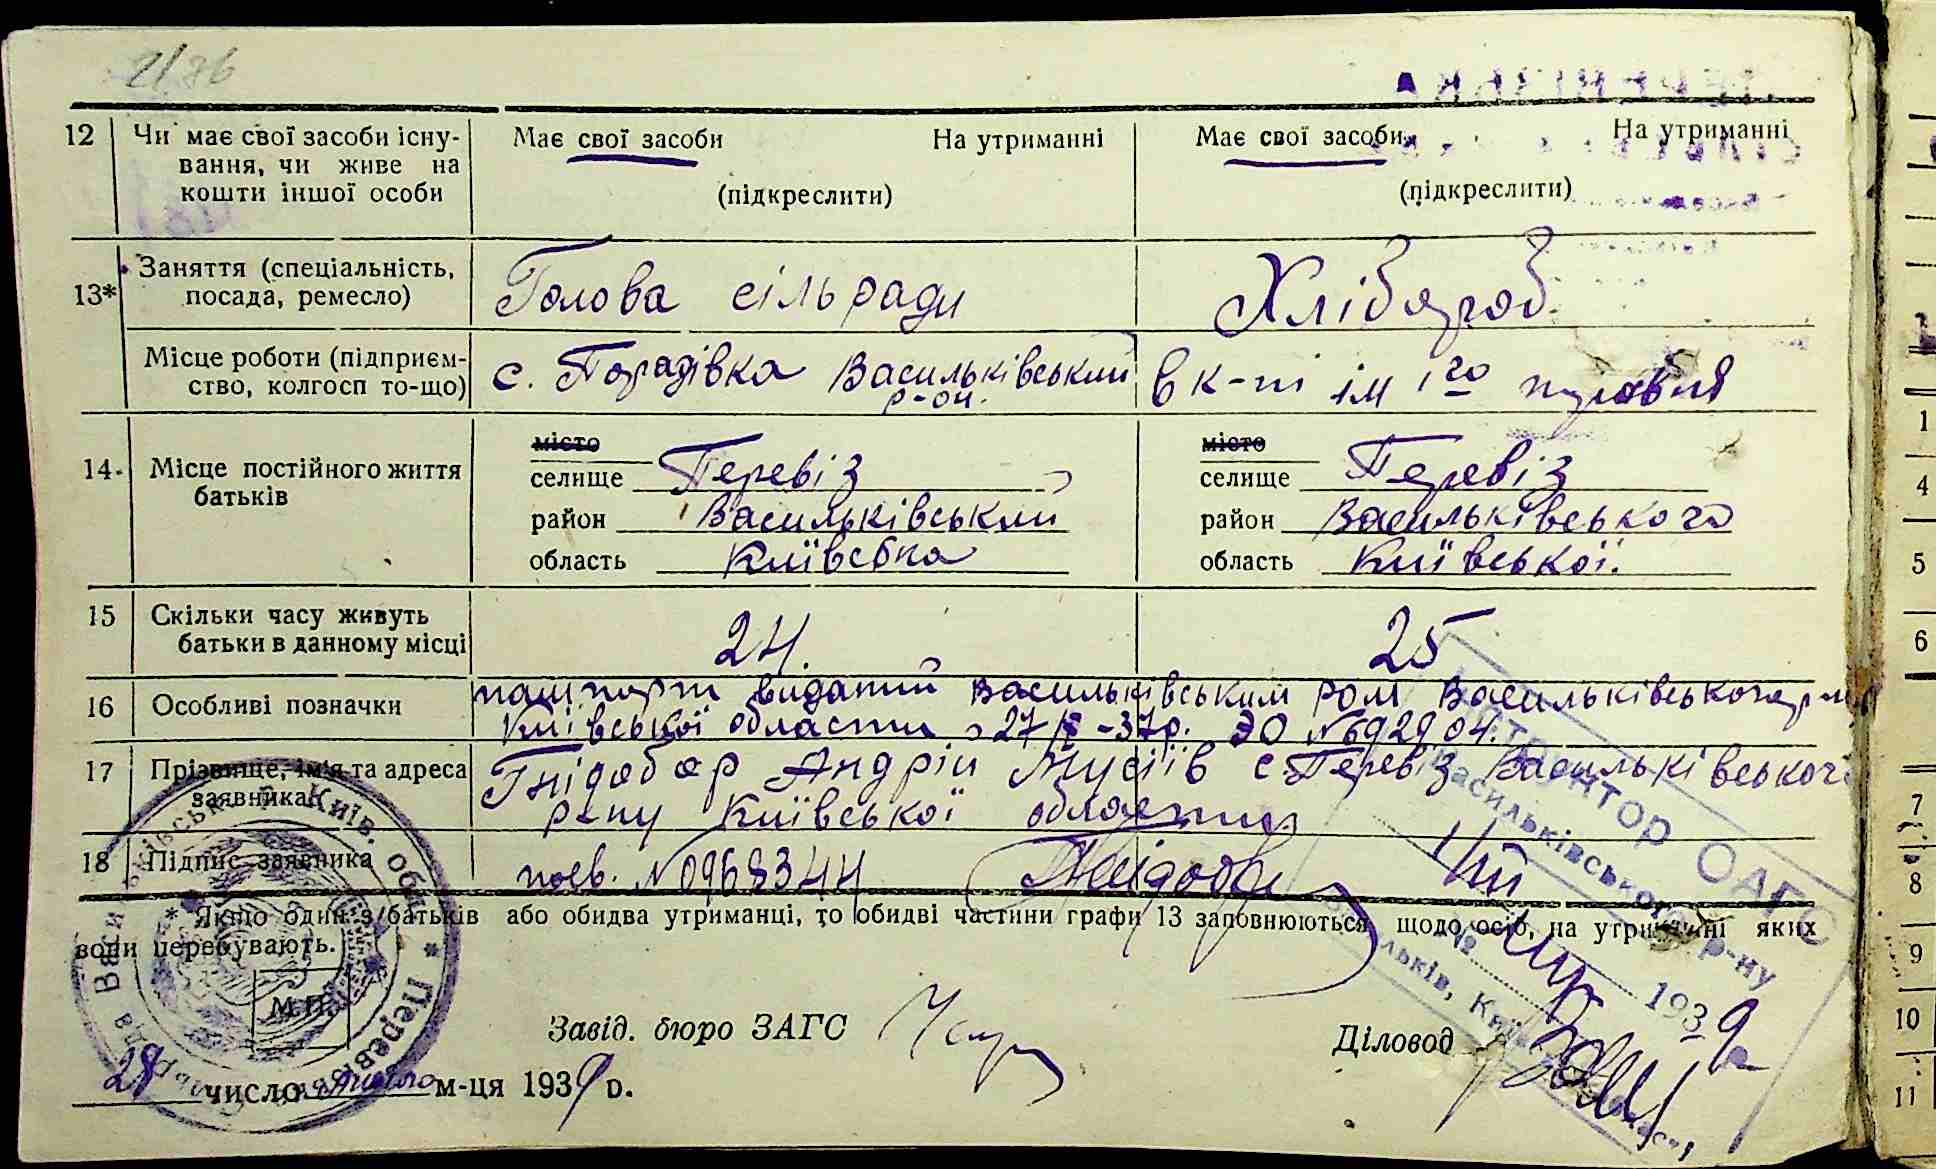 2/86
12 Чи має свої засоби існу- Має свої засоби На утриманні Має свої засоби На утриманні
вання, чи живе на
кошти іншої особи (підкреслити) (підкреслити)
13* Заняття (спеціальність, Голова сільради Хлібороб
посада, ремесло)
Місце роботи (підприєм- с. Порадівка Васильківський в к-пі ім 1го
ство, колгосп то-що) р-он.
місто місто
14 Місце постійного життя селище Перевіз селище Перевіз
батьків район Васильківський район Васильківського
область Київська область Київської.
15 Скільки часу живуть 24. 25
батьки в данному місці
16 Особливі позначки пашпорт виданий Васильківським РОМ
Київської області 27 -37р. ЭО №692904.
17 Прізвище, ім'я та адреса Гнідобор Андрій Мусіїв с. Перевіз Васильківського
заявника р-ну Київської области
18 Підпис заявника посв. №0968344
* Якщо один з батьків або обидва утриманці, то обидві частини графи 13 заповнюються щодо осіб, на утриманні яких
вони перебувають.
М.П.
Завід. бюро ЗАГС Діловод
28 число м-ця 1939 р.
Київ. обл. * Перевіз
Інструктор ОАГС
Васильківського р-ну
№ 1939